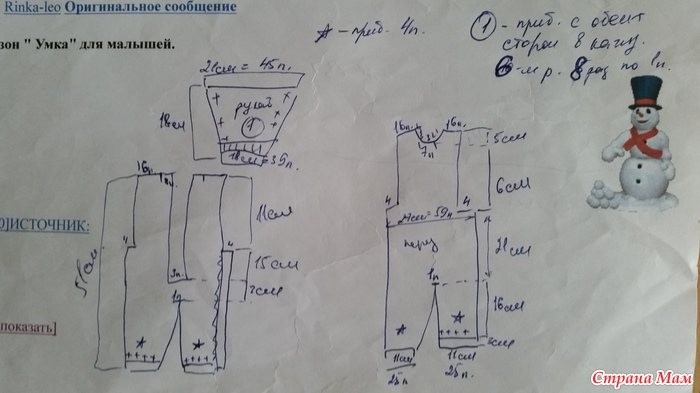 Rinka-leo Оригинальное сообщение
зон " Умка" для малышей.
А - приб. 4 п.
1 - приб. с обеих
сторон в кажд.
6-м р. 8 раз по 1 п.
21см = 45п.
18см
рукав
1
18см = 39п.
16п.
11см
4
4
15см
3п.
1п.
2см
16п.
16п.
7п
5см
6см
4
4
21см = 59п
перед
21см
1п
16см
11см
25п.
11см
25п.
]ИСТОЧНИК:
показать]
Страна Мам